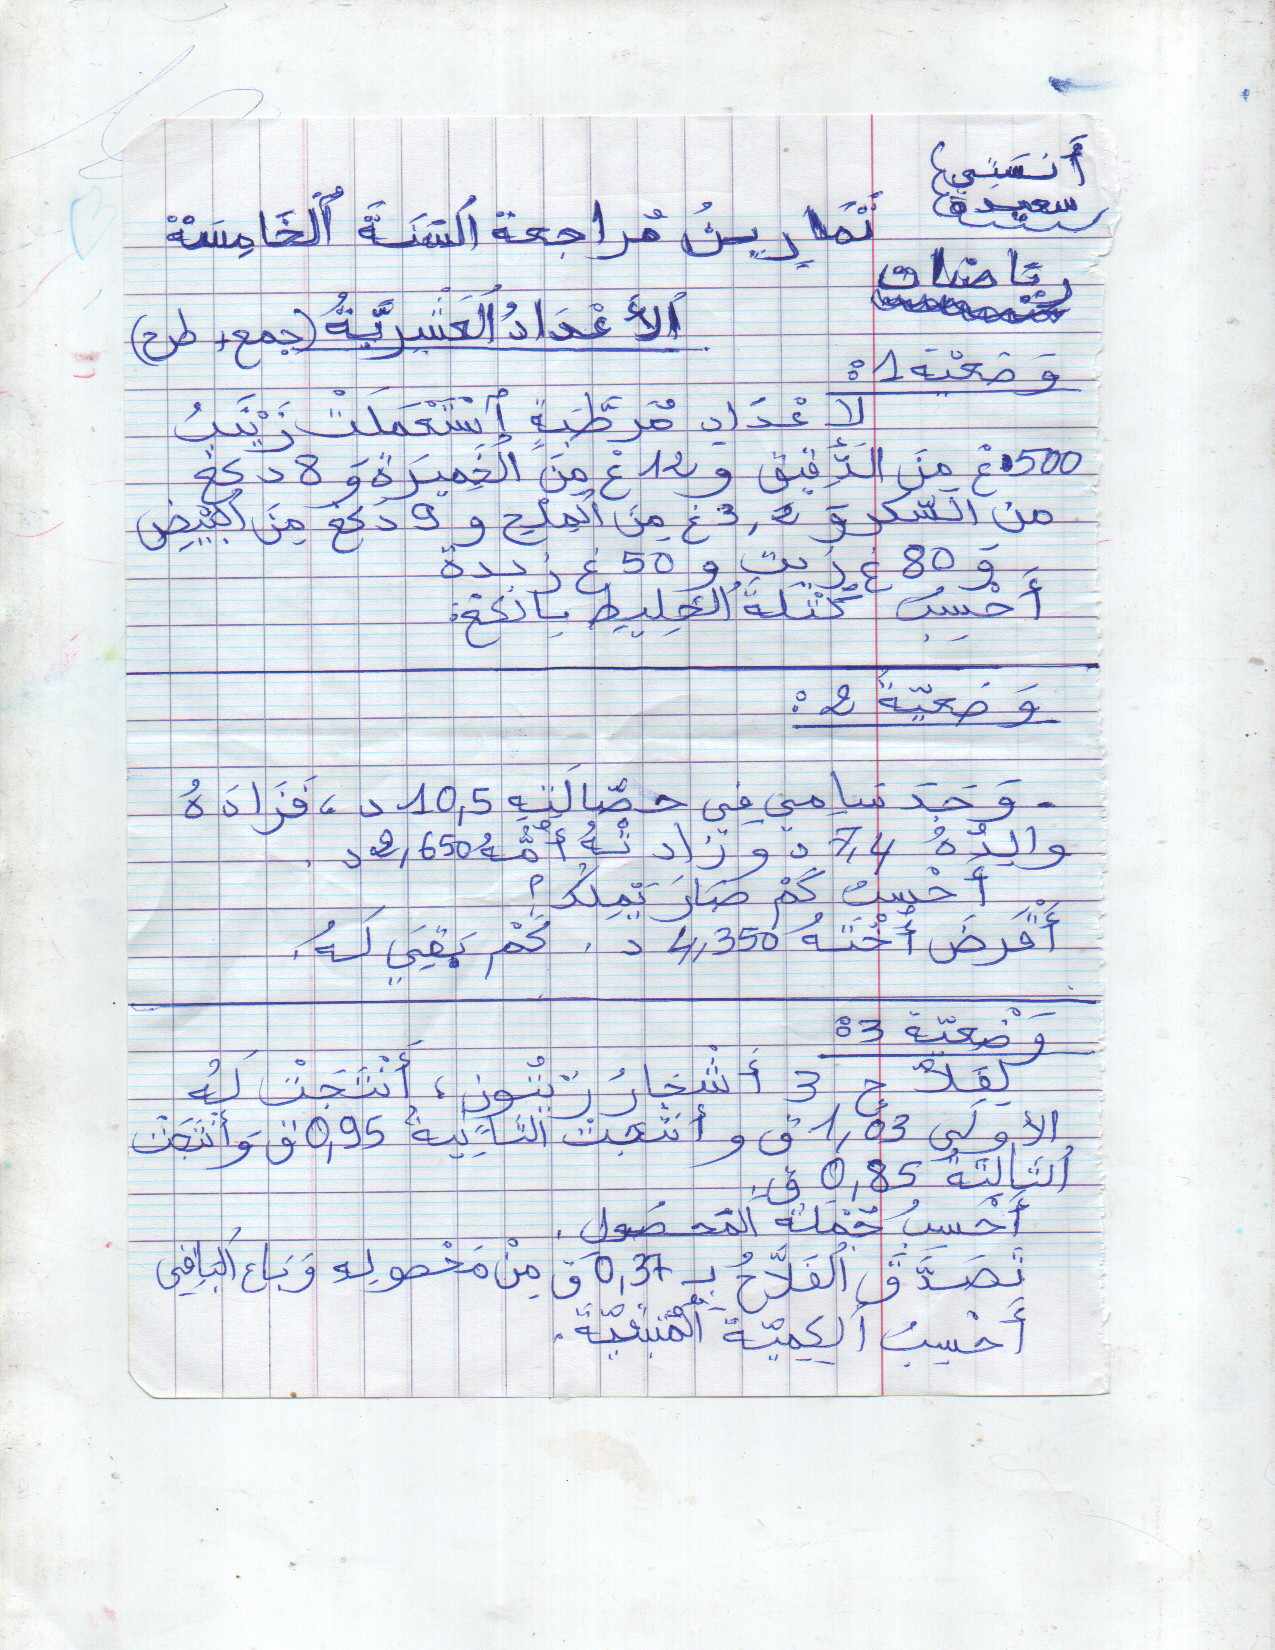 آنستي
سعيدة
تَمَارِينُ مُراجعة السَنَةَ الخَامِسَةْ
رياضيات
الأَعْدَادُ العَشْرِيَّةُ (جمع + طرح)
وَضعيّة 1 :
لاعْدَادِ مُرطَّبَةٍ إِسْتَعْمَلَتْ زَيْنَبُ
500غ مِنَ الدَّقِيق و 12 غ مِنَ الخَمِيرَة وَ 8 دكغ
من السّكر وَ 3,2 غ مِنَ المِلح و 9 دكغ مِنَ البَيْضِ
وَ 80 غ زيت و 50 غ زبدة
أَحْسِبُ كُتْلَةَ الخَلِيطِ بالكغ:
وَضعيّة 2 :
- وَجَدَ سَامي في حصّالَتِهِ 10,5 د ، فَزَادَهُ
والِدُهُ 7,4 د و زَادتْهُ أُمُّهُ 2,650 د .
أَحْسِبُ كَمْ صَارَ يَمِلكُ ؟
أَقْرَضَ أُخْتَهُ 4,350 د . كَمْ بَقِيَ لَهُ .
وَضْعيّة 3 :
لِفَلاّحٍ 3 أَشْجارُ زَيْتُونٍ ، أَنْتَجَتْ لَهُ
الأولَى 1,03 ق و أنتجت الثانِيةُ 0,95 ق وَأَنْتَجَتْ
الثَالِثَةُ 0,85 ق .
أَحْسبُ جُمْلَةَ المَحصُول .
تَصَدَّقَ الفَلاَّحُ بِـ 0,37 ق مِنْ مَحْصولِه وَبَاع البَاقِي
أَحْسِبُ الكِميّةَ المُتبقيّةَ .